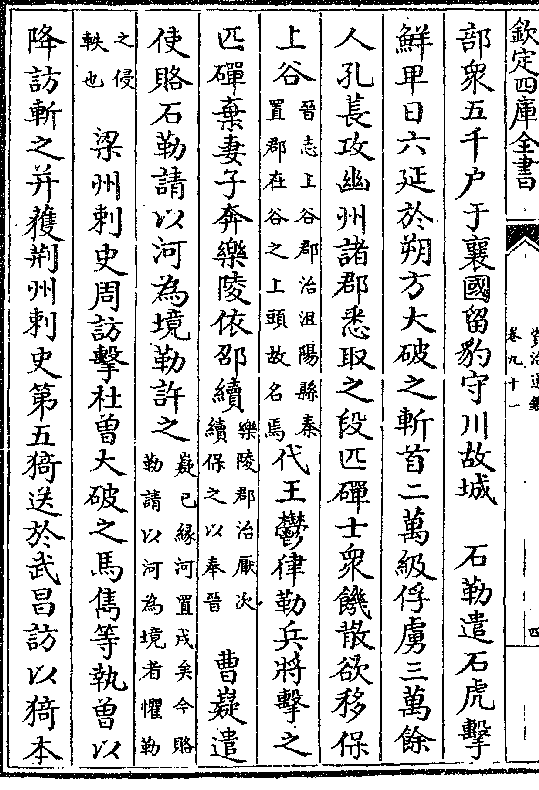 欽定四庫全書
資治通鑑
卷九十一
四
部衆五千户于襄國留豹守川故城　石勒遣石虎擊
鮮甲日六延於朔方大破之斬首二萬級俘虜三萬餘
人孔萇攻幽州諸郡悉取之段匹磾士衆饑散欲移保
上谷晉志上谷郡治沮陽縣秦置郡在谷之上頭故名焉代王鬱律勒兵將擊之
匹磾棄妻子奔樂陵依邵續樂陵郡治厭次續保之以奉晉　曹嶷遣
使賂石勒請以河為境勒許之嶷已縁河置戍矣今賂勒請以河為境者懼勒
之侵軼也　梁州刺史周訪擊杜曾大破之馬雋等執曾以
降訪斬之并獲荆州刺史第五猗送於武昌訪以猗本